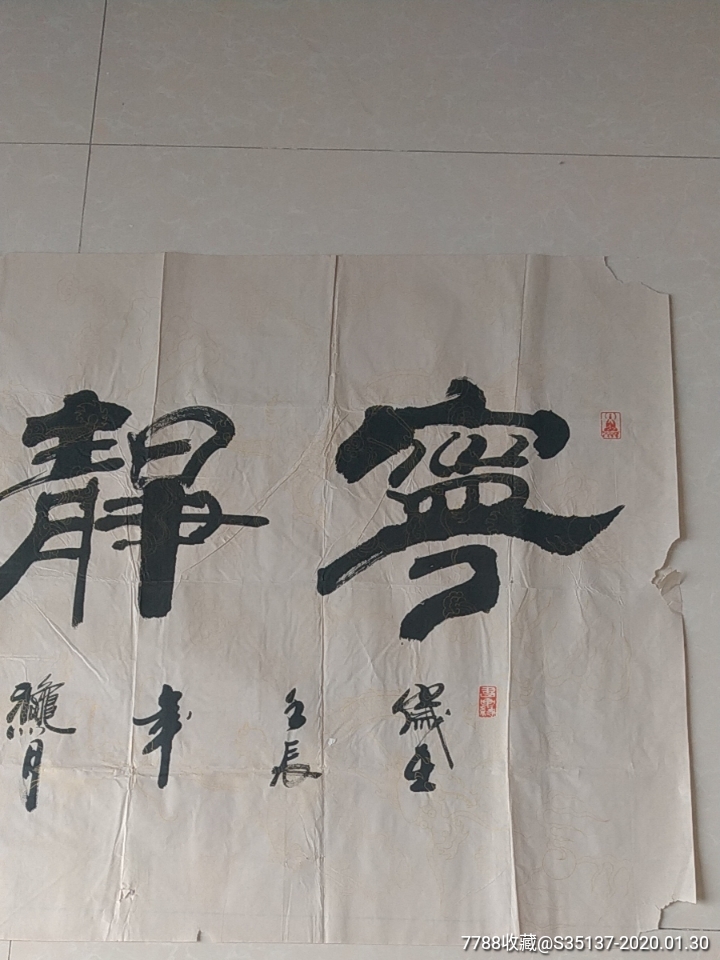 寧靜
歲在壬辰年龝月
7788收藏@S35137-2020.01.30